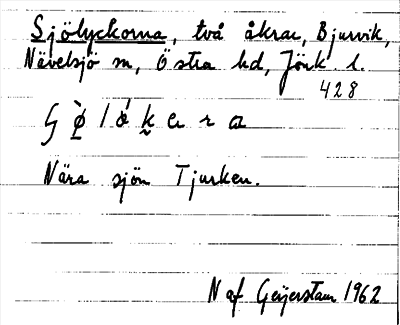 Sjölyckorna, två åkrar, Bjurvik,
Nävelsjö sn, Östra hd, Jönk l.
428
Nära sjön Tjurken.
N af Geijerstam 1962